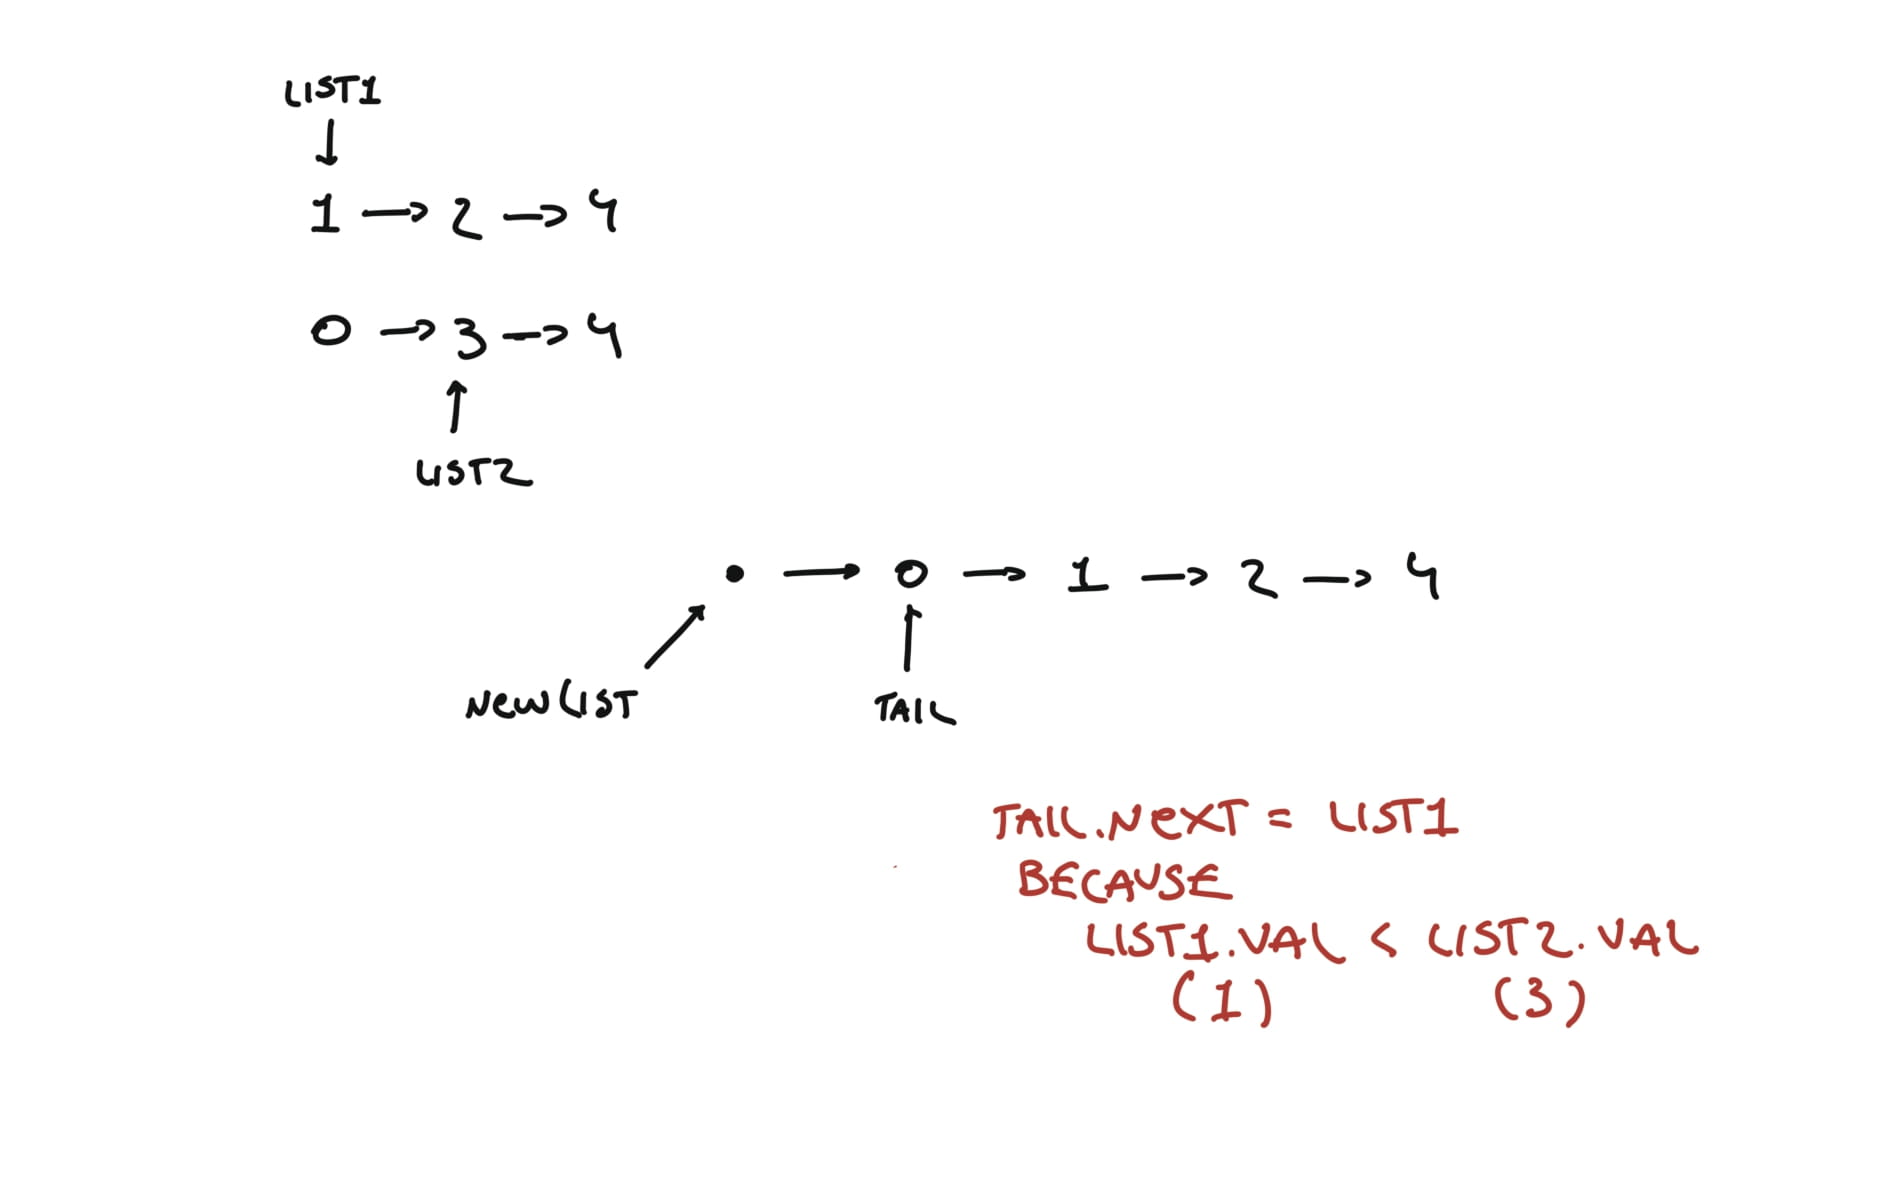 LIST1
↓
1 → 2 → 4
0 → 3 → 4
↑
LIST2
• → 0 → 1 → 2 → 4
NEWLIST TAIL
TAIL.NEXT = LIST1
BECAUSE
LIST1.VAL < LIST2.VAL
(1) (3)